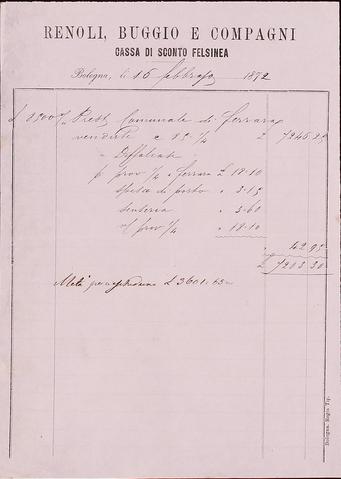 RENOLI, BUGGIO E COMPAGNI
CASSA DI SCONTO FELSINEA
Bologna, li 16 febbrajo 1872
£ 8500 Prest Comunale di Ferrara
vendute a 85 1/4 £ 7246.25
Diffalcate
p prov 1/4 Ferrara £ 18.10
spesa di porto " 3.15
senseria " 3.60
n/ prov 1/4 " 18.10
" 42.95
£ 7203.30
Metà per £ 3601.65
Bologna. Regia Tip.